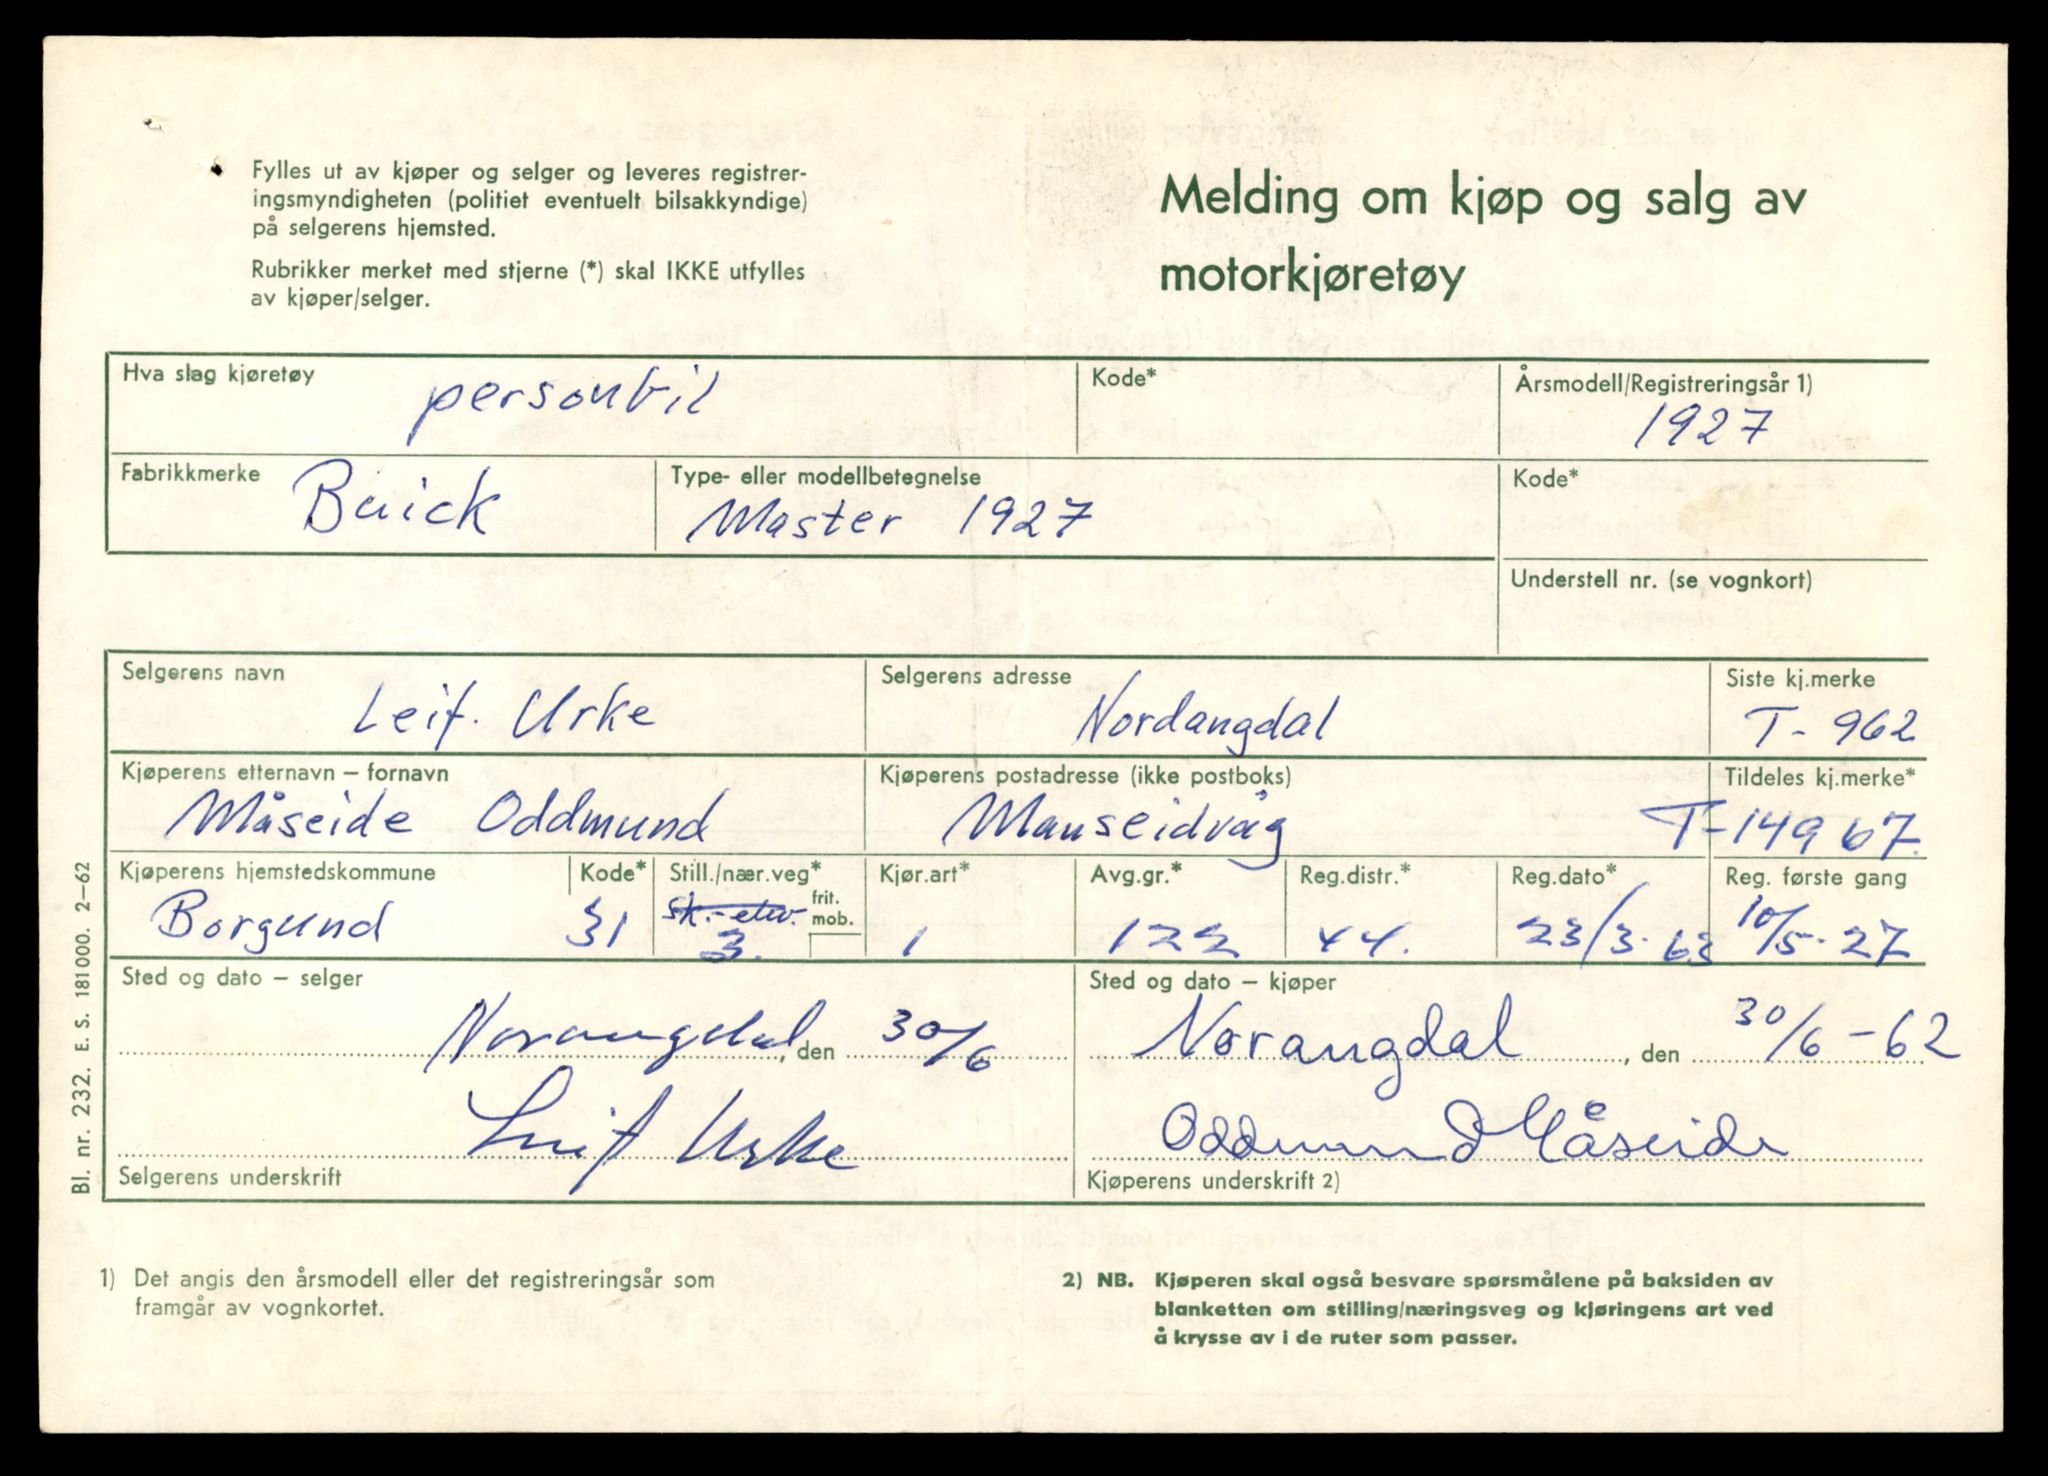 Fylles ut av kjøper og selger og leveres registrer-
ingsmyndigheten (politiet eventuelt bilsakkyndige)
på selgerens hjemsted.
Rubrikker merket med stjerne (*) skal IKKE utfylles
av kjøper/selger.
Melding om kjøp og salg av
motorkjøretøy
Hva slag kjøretøy
personbil
Kode*
Årsmodell/Registreringsår 1)
1927
Fabrikkmerke
Buick
Type- eller modellbetegnelse
Master 1927
Kode*
Understell nr. (se vognkort)
Selgerens navn
Leif. Urke
Selgerens adresse
Nordangdal
Siste kj.merke
T- 962
Kjøperens etternavn – fornavn
Måseide Oddmund
Kjøperens postadresse (ikke postboks)
Mauseidvåg
Tildeles kj.merke*
T-14967.
Kjøperens hjemstedskommune
Borgund
Kode*
31
Still./nær.veg*
sk.-elev.
3.
frit.
mob.
Kjør.art*
1
Avg.gr.*
122
Reg.distr.*
44.
Reg.dato*
23/3-63
Reg. første gang
10/5-27
Sted og dato – selger
Norangdal, den 30/6
Leif Urke
Selgerens underskrift
Sted og dato – kjøper
Norangdal, den 30/6-62
Oddmund Måseide
Kjøperens underskrift 2)
Bl. nr. 232. E. S. 181000. 2–62
1) Det angis den årsmodell eller det registreringsår som
framgår av vognkortet.
2) NB. Kjøperen skal også besvare spørsmålene på baksiden av
blanketten om stilling/næringsveg og kjøringens art ved
å krysse av i de ruter som passer.